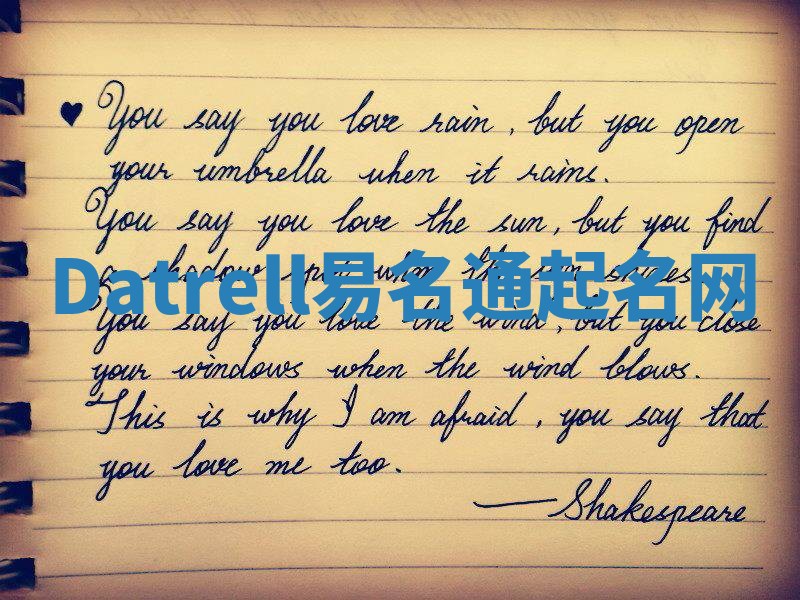 You say you love rain, but you open
your umbrella when it rains.
You say you love the sun, but you find
a shadow spot when the sun shines
Datrell易名通起名网
You say you love the wind, but you close
your windows when the wind blows.
This is why I am afraid, you say that
you love me too.
— Shakespeare